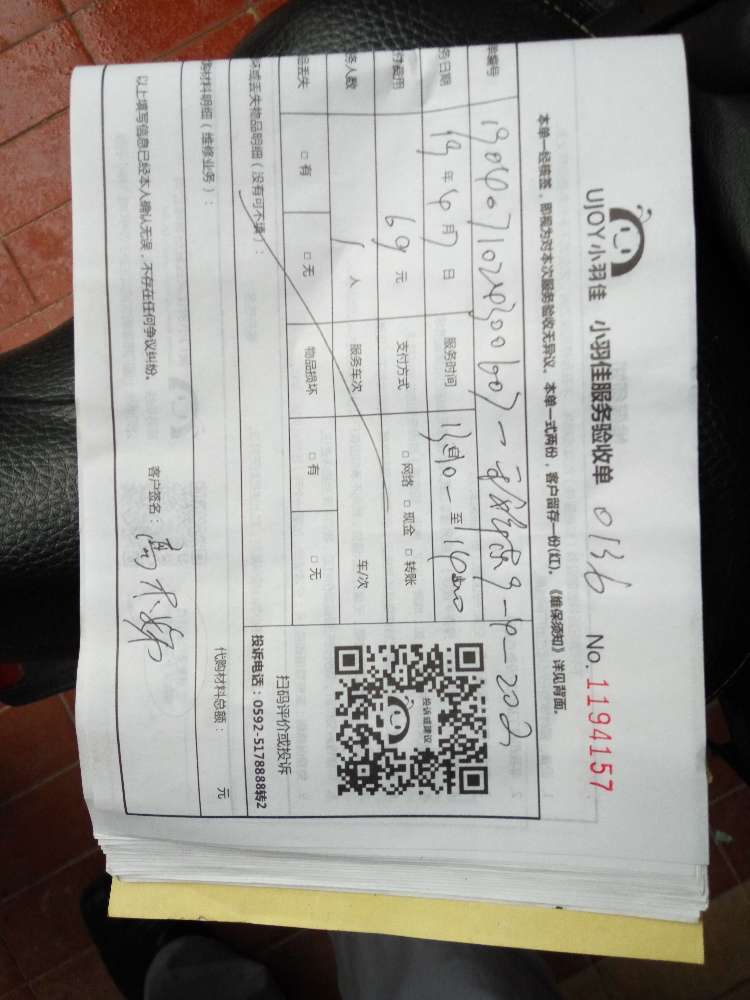 UJOY小羽佳 小羽佳服务验收单 0136 No.1194157
本单一经签签，即视为对本次服务验收无异议。本单一式两份，客户留存一份(红)。《维保须知》详见背面。
单编号
务日期 19年4月7日 服务时间 至
付费用 69元 支付方式 □网络 □现金 □转账
务人数 1人 服务车次 车/次
品丢失 □有 □无 物品损坏 □有 □无
坏或丢失物品明细（没有可不填）：
扫码评价或投诉
投诉电话：0592-5178888转2
投诉或建议
购材料明细（维修业务）： 代购材料总额： 元
以上填写信息已经本人确认无误，不存在任何争议纠纷。 客户签名：